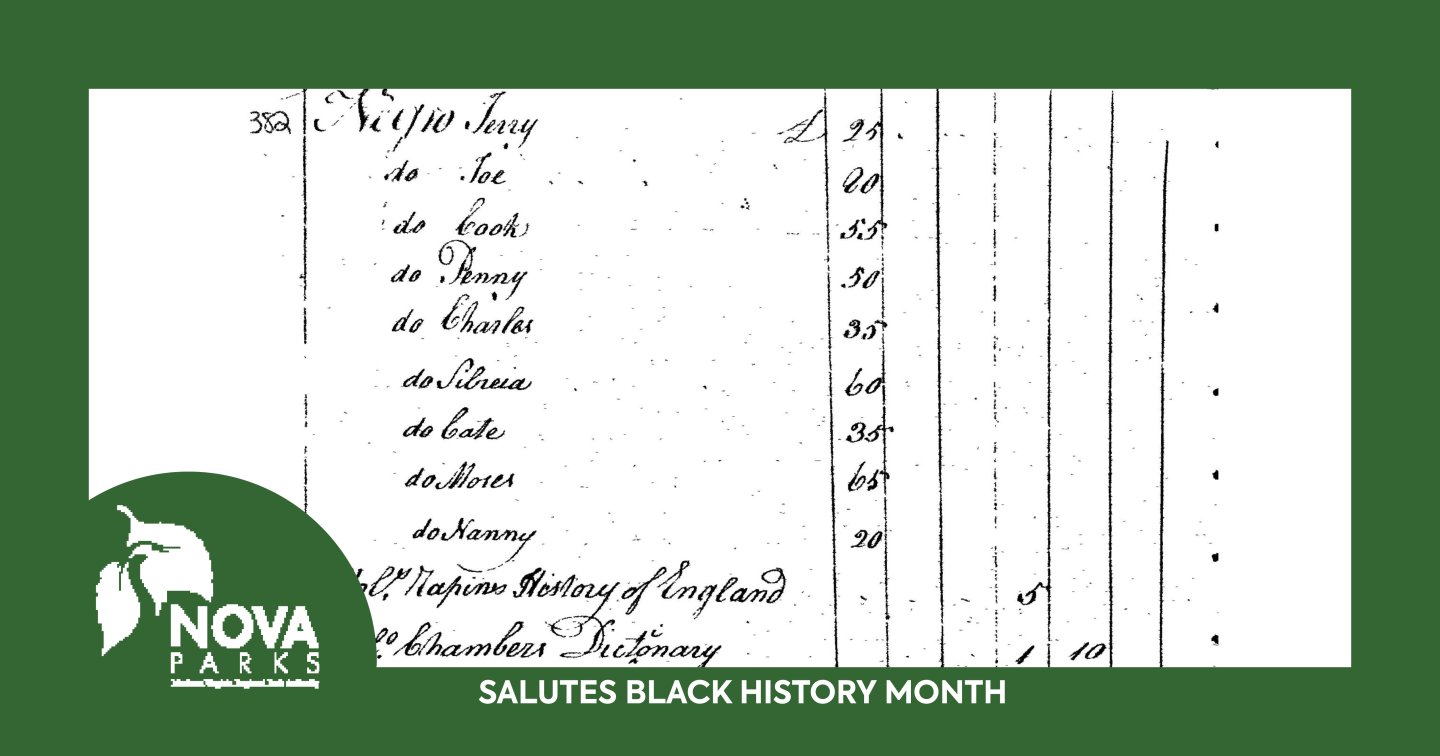 382 Negro Jerry £ 25
do Joe 20
do Cook 55
do Penny 50
do Charles 35
do Silvia 60
do Cate 35
do Moses 65
do Nanny 20
Rapins History of England 5
Chambers Dictonary 1 10
NOVA
PARKS
SALUTES BLACK HISTORY MONTH